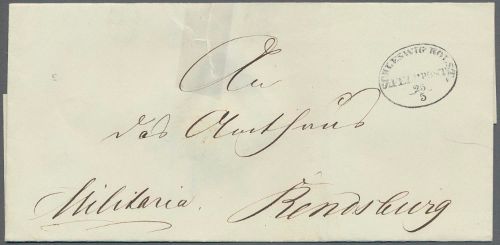 SCHLESWIG HOLST.
FELDPOST
25
5
An
das Amthaus
Militaria. Rendsburg